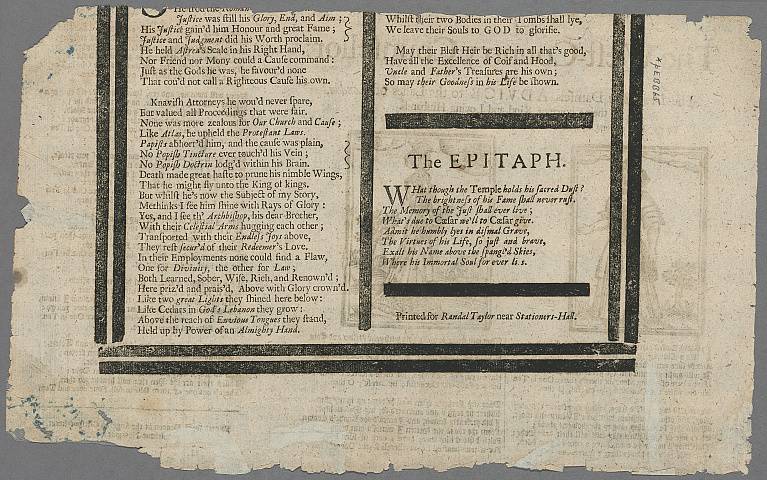 He trod the Roman
Justice was still his Glory, End, and Aim;
His Justice gain'd him Honour and great Fame;
Justice and Judgment did his Worth proclaim.
He held Astrea's Scale in his Right Hand,
Nor Friend nor Mony could a Cause command:
Just as the Gods he was, he favour'd none
That cou'd not call a Righteous Cause his own.
Knavish Attorneys he wou'd never spare,
But valued all Proceedings that were fair.
None was more zealous for Our Church and Cause;
Like Atlas, he upheld the Protestant Laws.
Papists abhorr'd him, and the cause was plain,
No Popish Tincture ever touch'd his Vein;
No Popish Doctrin lodg'd within his Brain.
Death made great haste to prune his nimble Wings,
That he might fly unto the King of kings.
But whilst he's now the Subject of my Story,
Methinks I see him shine with Rays of Glory:
Yes, and I see th' Archbishop, his dear Brother,
With their Celestial Arms hugging each other;
Transported with their Endless Joys above,
They rest secur'd of their Redeemer's Love.
In their Employments none could find a Flaw,
One for Divinity, the other for Law;
Both Learned, Sober, Wise, Rich, and Renown'd;
Here priz'd and prais'd, Above with Glory crown'd.
Like two great Lights they shined here below:
Like Cedars in God's Lebanon they grow:
Above the reach of Envious Tongues they stand,
Held up by Power of an Almighty Hand.
Whilst their two Bodies in their Tombs shall lye,
We leave their Souls to GOD to glorifie.
May their Blest Heir be Rich in all that's good,
Have all the Excellence of Coif and Hood,
Uncle and Father's Treasures are his own;
So may their Goodness in his Life be shown.
The EPITAPH.
WHat though the Temple holds his sacred Dust?
The brightness of his Fame shall never rust.
The Memory of the Just shall ever live;
What's due to Cæsar we'll to Cæsar give.
Admit he humbly lyes in dismal Grave,
The Virtues of his Life, so just and brave,
Exalt his Name above the spangl'd Skies,
Where his Immortal Soul for ever
Printed for Randal Taylor near Stationers-Hall.